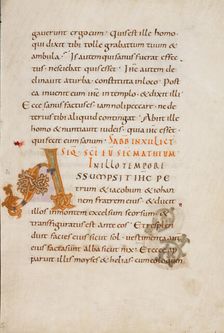 gauerunt ergo eum · Quis est ille homo
qui dixit tibi tolle grabattum tuum &
ambula · Is autem qui sanus fuerat effec
tus · nesciebat quis esset · Ihc autem de
clinauit a turba constituta in loco · Post
ea inuenit eum ihc in templo · & dixit illi ·
Ecce sanus factus es · iam noli peccare · ne de
terius tibi aliquid contingat · Abiit ille
homo & nuntiauit iudeis · quia ihc esset
qui fecit eum sanum ·
SABB IN XII LECT
SEQ · SCI EU SEC MATHEUM
IN ILLO TEMPORE
ASSUMPSIT IHC PE
trum & iacobum & iohan
nem fratrem eius · & duxit
illos in montem excelsum seorsum · &
transfiguratus est ante eos · Et resplen
duit facies eius sicut sol · uestimenta aut
eius facta sunt alba sicut nix · Et ecce ap
paruit illis moyses & helias cum eo loqu